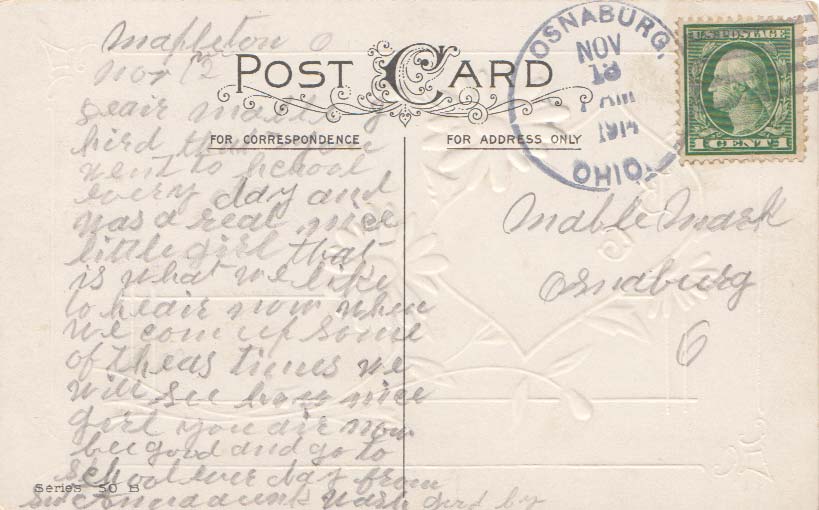 Mapleton O
Nov 12
POST CARD
FOR CORRESPONDENCE
FOR ADDRESS ONLY
OSNABURG,
NOV
13
1914
OHIO.
U.S. POSTAGE
1 CENT 1
deair
hird that you
went to school
every day and
was a real nice
little girl that
is what we like
to heair now when
we com up some
of theas times we
will see how nice
girl you air now
bee good and go to
school ever day from
good by
Mable Mark
Osnaburg
O
Series 50 B